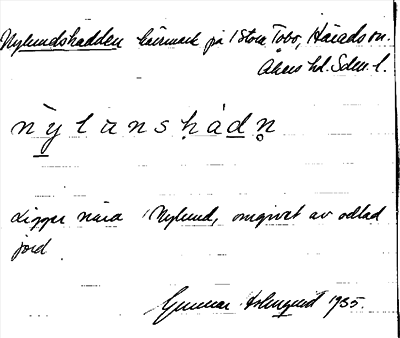 Nylundshadden kärrmark på 1 Stora Tobo, Härads sn.
Åkers hd. Sdm. l.
nỳlanshádn
Ligger nära Nylund, omgivet av odlad
jord
Gunnar Holmquist 1935.